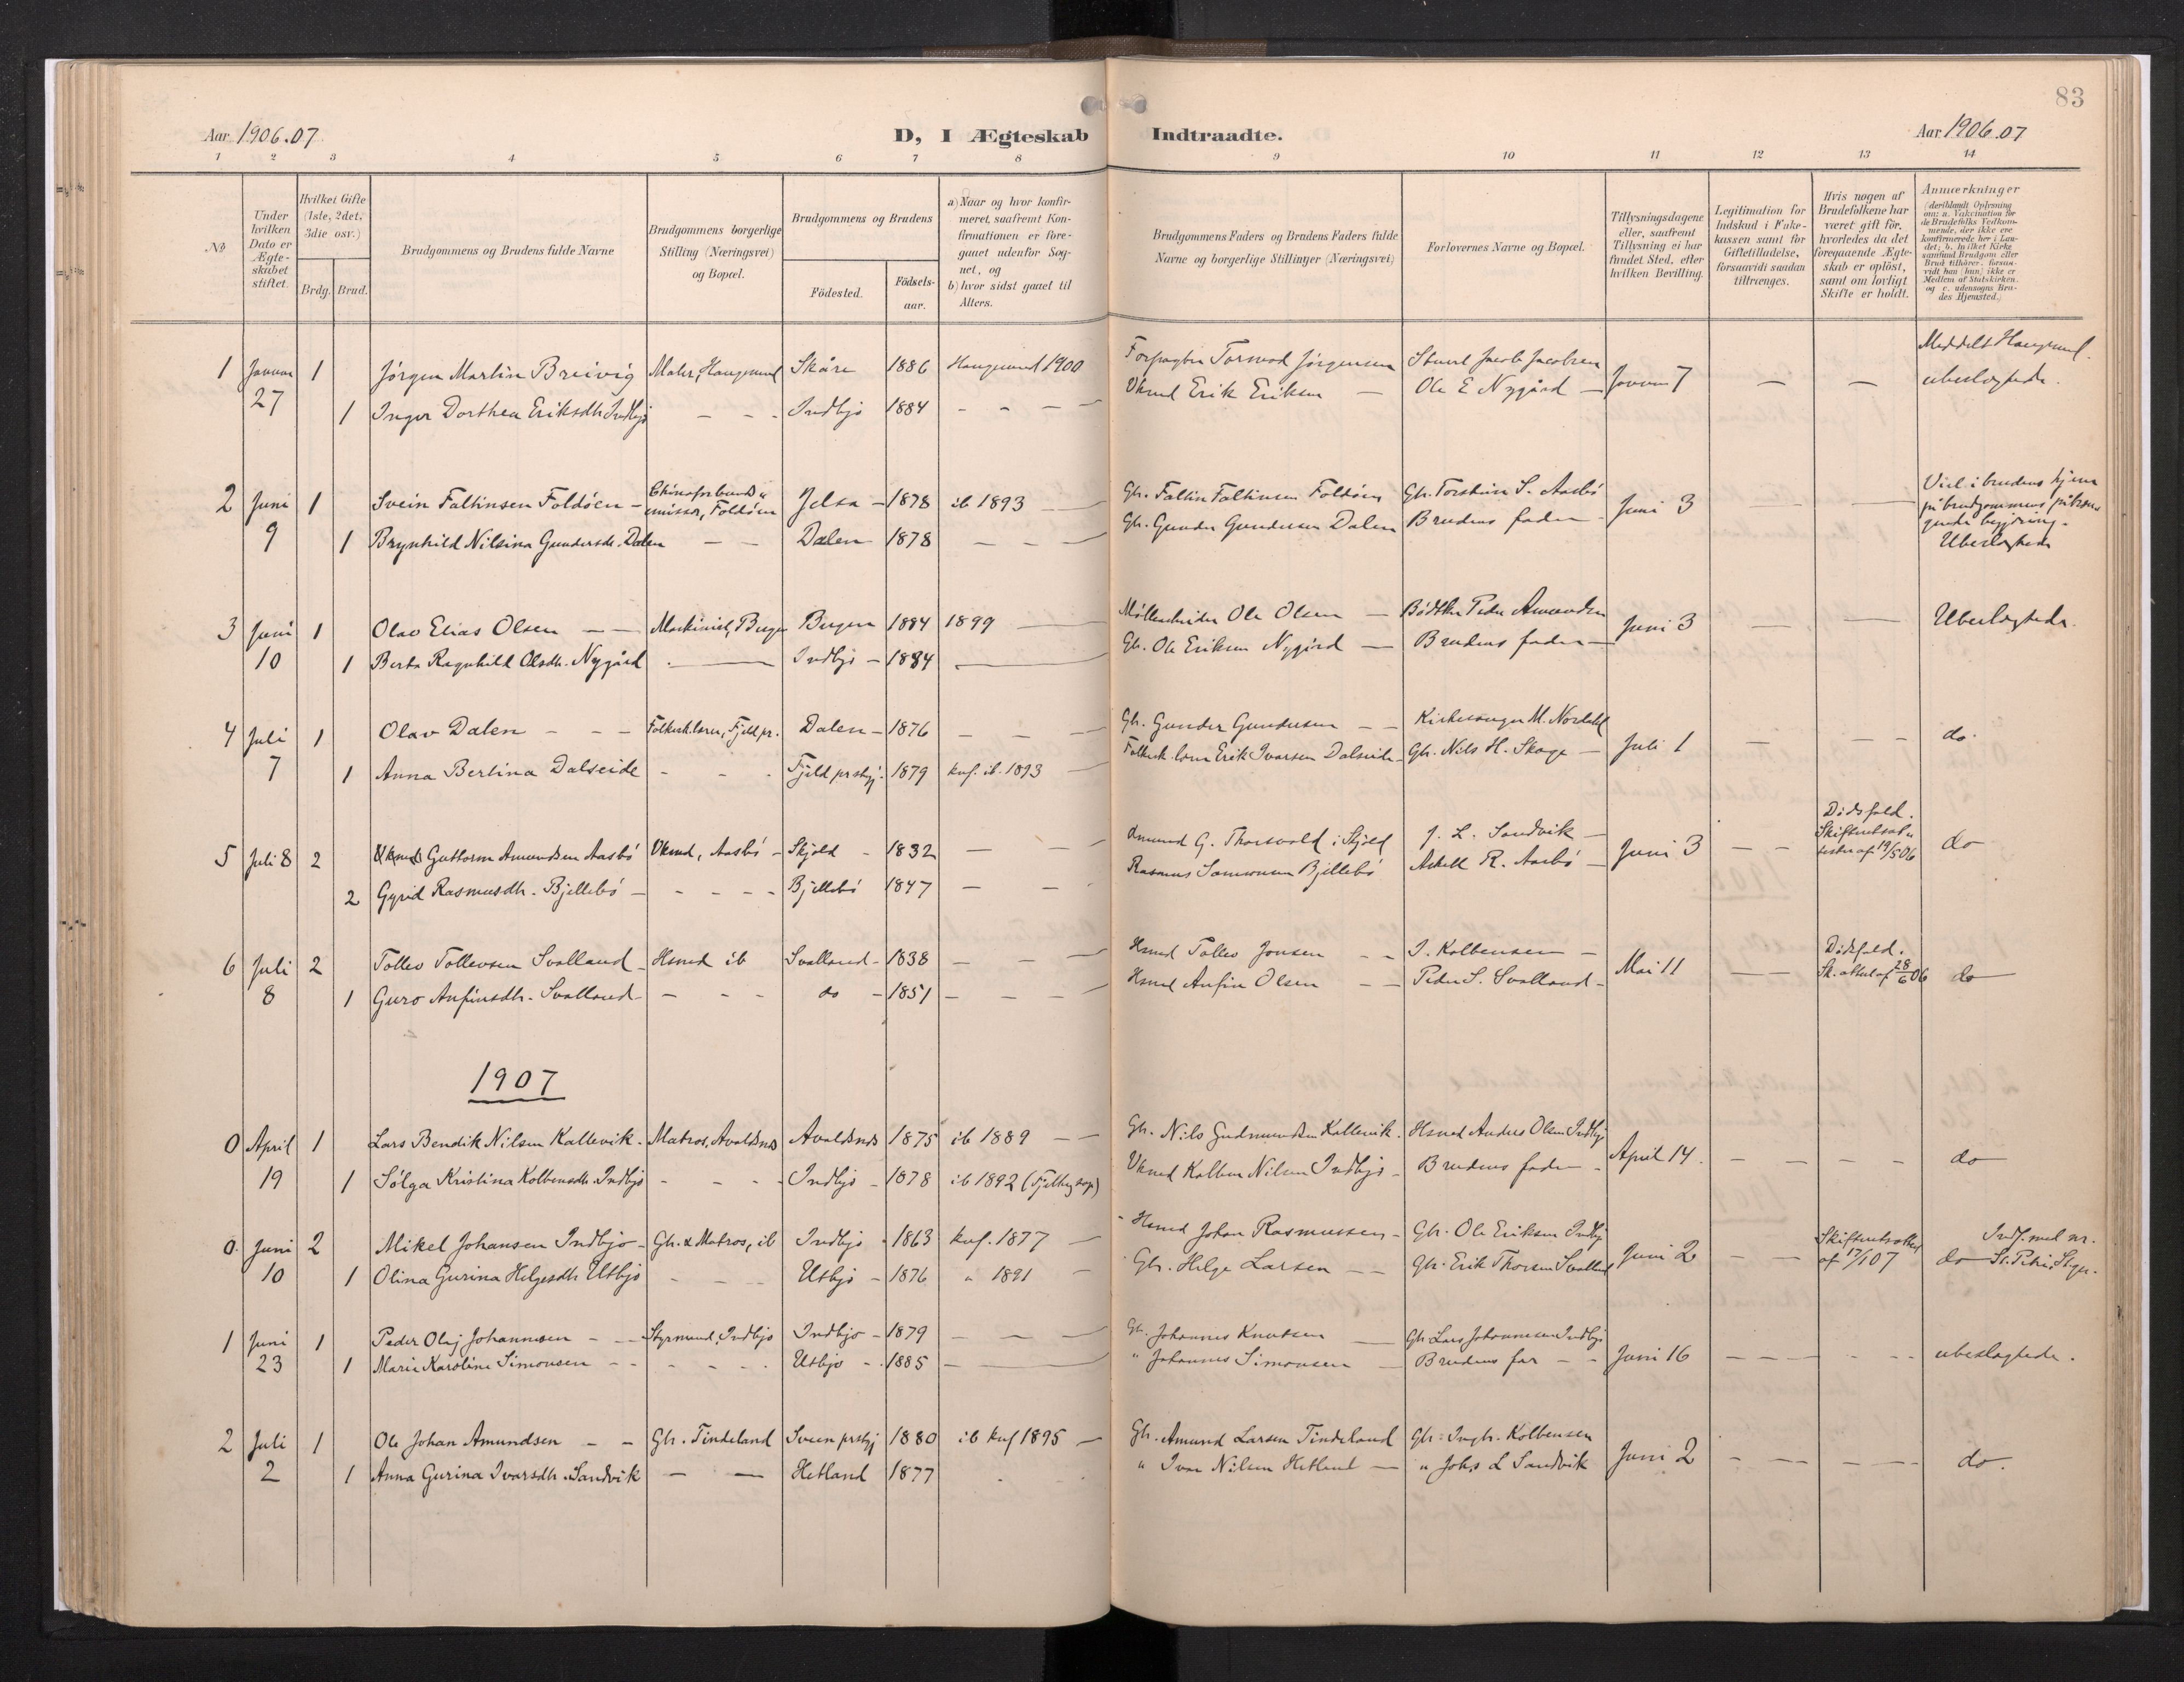 83
Aar 1906.07
D, I Ægteskab Indtraadte.
Aar 1906.07
1 2 3 4 5 6 7 8 9 10 11 12 13 14
No
Under hvilken Dato er Ægteskabet stiftet.
Hvilket Gifte (1ste, 2det, 3die osv.)
Brdg. Brud.
Brudgommens og Brudens fulde Navne
Brudgommens borgerlige Stilling (Næringsvei) og Bopæl.
Brudgommens og Brudens
Fødested.
Fødselsaar.
a) Naar og hvor konfirmeret, saafremt Konfirmationen er foregaaet udenfor Sognet, og
b) hvor sidst gaaet til Alters.
Brudgommens Faders og Brudens Faders fulde Navne og borgerlige Stillinger (Næringsvei)
Forlovernes Navne og Bopæl.
Tillysningsdagene eller, saafremt Tillysning ei har fundet Sted, efter hvilken Bevilling.
Legitimation for Indskud i Enkekassen samt for Giftetilladelse, forsaavidt saadan tiltrænges.
Hvis nogen af Brudefolkene har været gift før, hvorledes da det foregaaende Ægteskab er opløst, samt om lovligt Skifte er holdt.
Anmærkninger (deriblandt Oplysning om: a. Vakcination for de Brudefolks Vedkommende, der ikke ere konfirmerede her i Landet; b. hvilket Kirkesamfund Brudgom eller Brud tilhører, forsaavidt han (hun) ikke er Medlem af Statskirken, og c. udensogns Brudes Hjemsted.)
1 Januar 1 Jørgen Martin Breivig Maler, Haugesund Skåre 1886 Haugesund 1900 Forpagter Tormod Jørgensen Stuert Jacob Jacobsen Januar 7 — — Meddelt Haugesund.
27 1 Inger Dorthea Eriksdtr Indbjo - - - Indbjo 1884 - - - Ukmd Erik Eriksen — Ole E Nygård — ubeslægtede.
2 Juni 1 Svein Faltinsen Foldøen — emissær, Foldøen Jelsa — 1878 ib 1893 — Gbr. Faltin Faltinsen Foldøen Gbr. Torstein S. Aasbø Juni 3 — — Viel. i brudens hjem på brudgommens
9 1 Brynhild Nilsina Gundersdr. Dalen — — Dalen 1878 — — — Gbr. Gunder Gundersen Dalen Brudens fader - begjæring. Ubeslægtede
3 Juni 1 Olav Elias Olsen — — Maskinist, Bergen Bergen 1884 1899 — Ole Olsen — Bødker Peder Amundsen Juni 3 — — Ubeslægtede.
10 1 Berta Ragnhild Olsdtr. Nygård — Indbjo — 1884 — Gbr. Ole Eriksen Nygård — Brudens fader —
4 Juli 1 Olav Dalen - - - Folkesk.lærer, Fjeld pr. Dalen — 1876 — — — Gbr. Gunder Gundersen — — Kirkesanger M. Nordahl Juli 1 — — — do.
7 1 Anna Bertina Dalseide - - - Fjeld prstgj. 1879 knf. ib. 1893 — Folkesk.lærer Erik Ivarsen Dalseide — Gbr. Nils H. Skage —
5 Juli 8 2 Guttorm Amundsen Aasbø Ukmd, Aasbø — Skjold - 1832 — — — Amund G. Thorsvold i Skjold J. L. Sandvik — Juni 3 — — Dødsfald. af 19/5 06 do
2 Gyrid Rasmusdtr. Bjellebø — - - - - Bjellebø 1847 — — Rasmus Samsonsen Bjellebø Askell R. Aasbø —
6 Juli 2 Tollev Tollevsen Svalland — Hsmd ib Svalland - 1838 — — — Hsmd Tollev Jonsen - - I. Kolbensen — Mai 11 — — Dødsfald. Sk. attest af 28/6 06 do —
8 1 Guro Anfinsdtr. Svalland - - - do — 1851 — — — Hsmd Anfin Olsen — — Peder S. Svalland -
1907
0 April 1 Lars Bendik Nilsen Kallevik. Matros, Avaldsnes Avaldsnes 1875 ib 1889 — — Gbr. Nils Gudmundsen Kallevik. Hsmd Anders Olsen Indbjo April 14. — — — — do
19 1 Sølga Kristina Kolbensdtr Indbjo - - - Indbjo — 1878 ib 1892 Ukmd Kolben Nilsen Indbjo - Brudens fader -
0. Juni 2 Mikel Johansen Indbjo - Gbr. & Matros, ib Indbjo - 1863 knf. 1877 — Hsmd Johan Rasmussen - Gbr. Ole Eriksen Indbj Juni 2 — — Skifteattest af 17/1 07 do Indf. med nr. St. Petri, Stgr.
10 1 Olina Gurina Helgesdtr Utbjo - - - Utbjo — 1876 " 1891 — Gbr. Helge Larsen — — Gbr. Erik Thorsen Svalland
1 Juni 1 Peder Olaj Johannesen - — Styrmand, Indbjo Indbjo - 1879 — — — Gbr. Johannes Knutsen — Gbr Lars Johannesen Indbjo Juni 16 — — — - - - ubeslægtede.
23 1 Marie Karoline Simonsen - - - - - Utbjo - 1885 — " Johannes Simonsen — Brudens far — -
2 Juli 1 Ole Johan Amundsen — — Gbr. Tindeland Sveen prstgj 1880 ib knf 1895 — Gbr. Amund Larsen Tindeland Gbr: Ingbr. Kolbensen Juni 2 - — - — — do.
2 1 Anna Gurina Ivarsdtr. Sandvik — — Hetland 1877 " Ivar Nilsen Hetland — " Johs L Sandvik